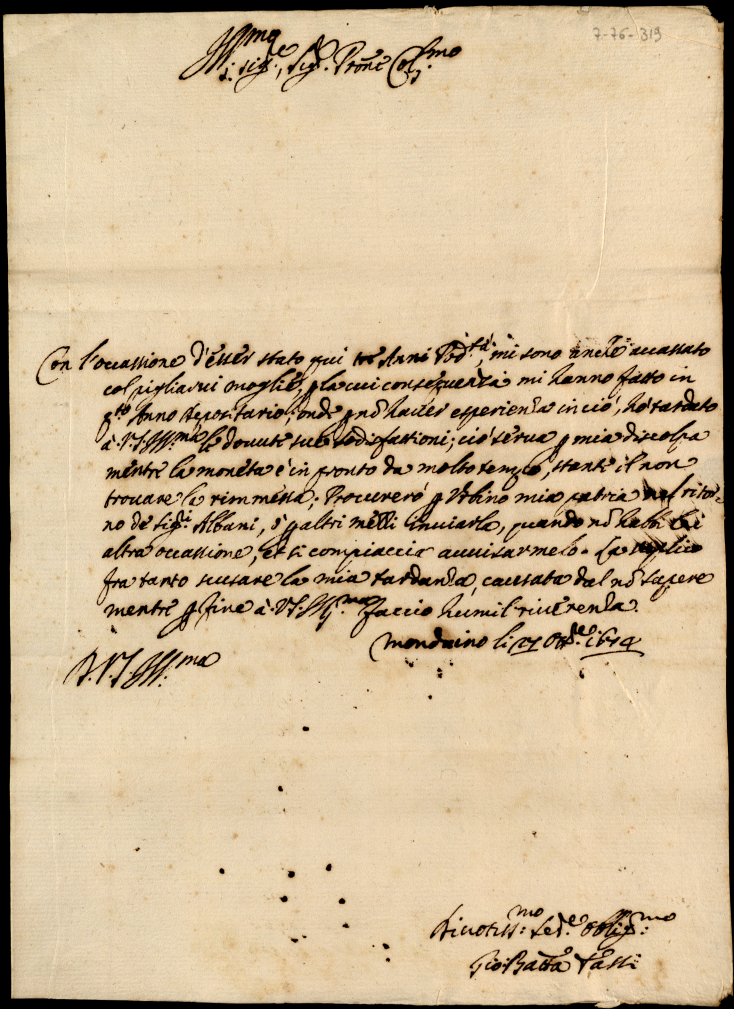 7-76-319
Ill:mo
Sig:re, Sig:r Pron̄e Col:mo
Con l'occassione d'esser stato qui tre Anni Pod:stà, mi sono anche accassato
col pigliarvi moglie, p la cui consequenza mi hanno fatto in
q:to Anno depositario; onde p nō haver esperienza in ciò, hò tardato
à V.S. Ill:ma le dovute sue sodisfattioni; ciò serva p mia discolpa
mentre la moneta è in pronto da molto tempo, stante il non
trovare la rimmessa; Procurerò p Urbino mia patria nel ritor=
no de Sig:ri Albani, ò p altri mezzi inviarla, quando nō habbi lei
altra occassione, et si compiaccia avvisarmelo. La supplico
fra tanto scusare la mia tardanza, causata dal nō sapere
mentre p fine à V.S. Ill:ma faccio humil riverenza.
Mondaino li Ott:re
D. V. S. Ill:ma
Divotiss:mo Se:re Oblig:mo
Gio: Batta Tassi